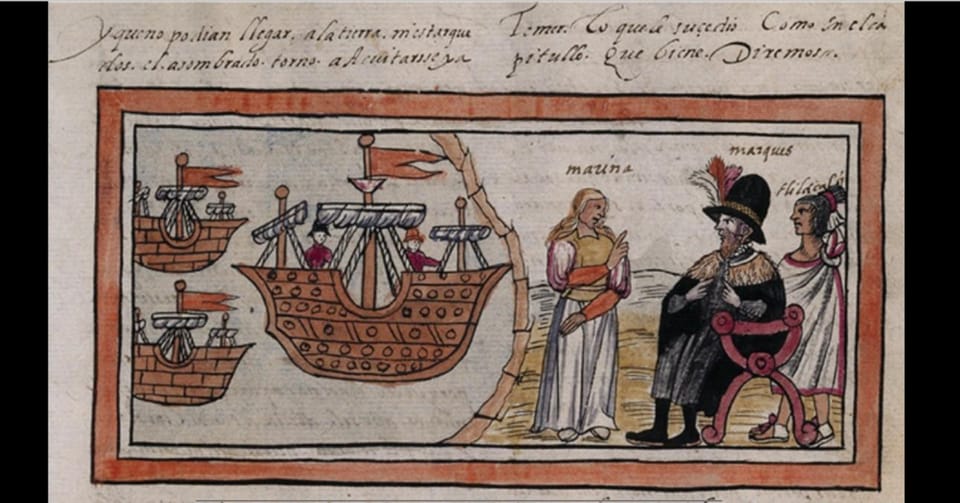 y que no podian llegar. a la tierra. ni estar que
dos. el asombrado. torno. a
Temer. Lo que le sucedio. Como En el ca
pitullo. Que biene. Diremos.
marina
marques